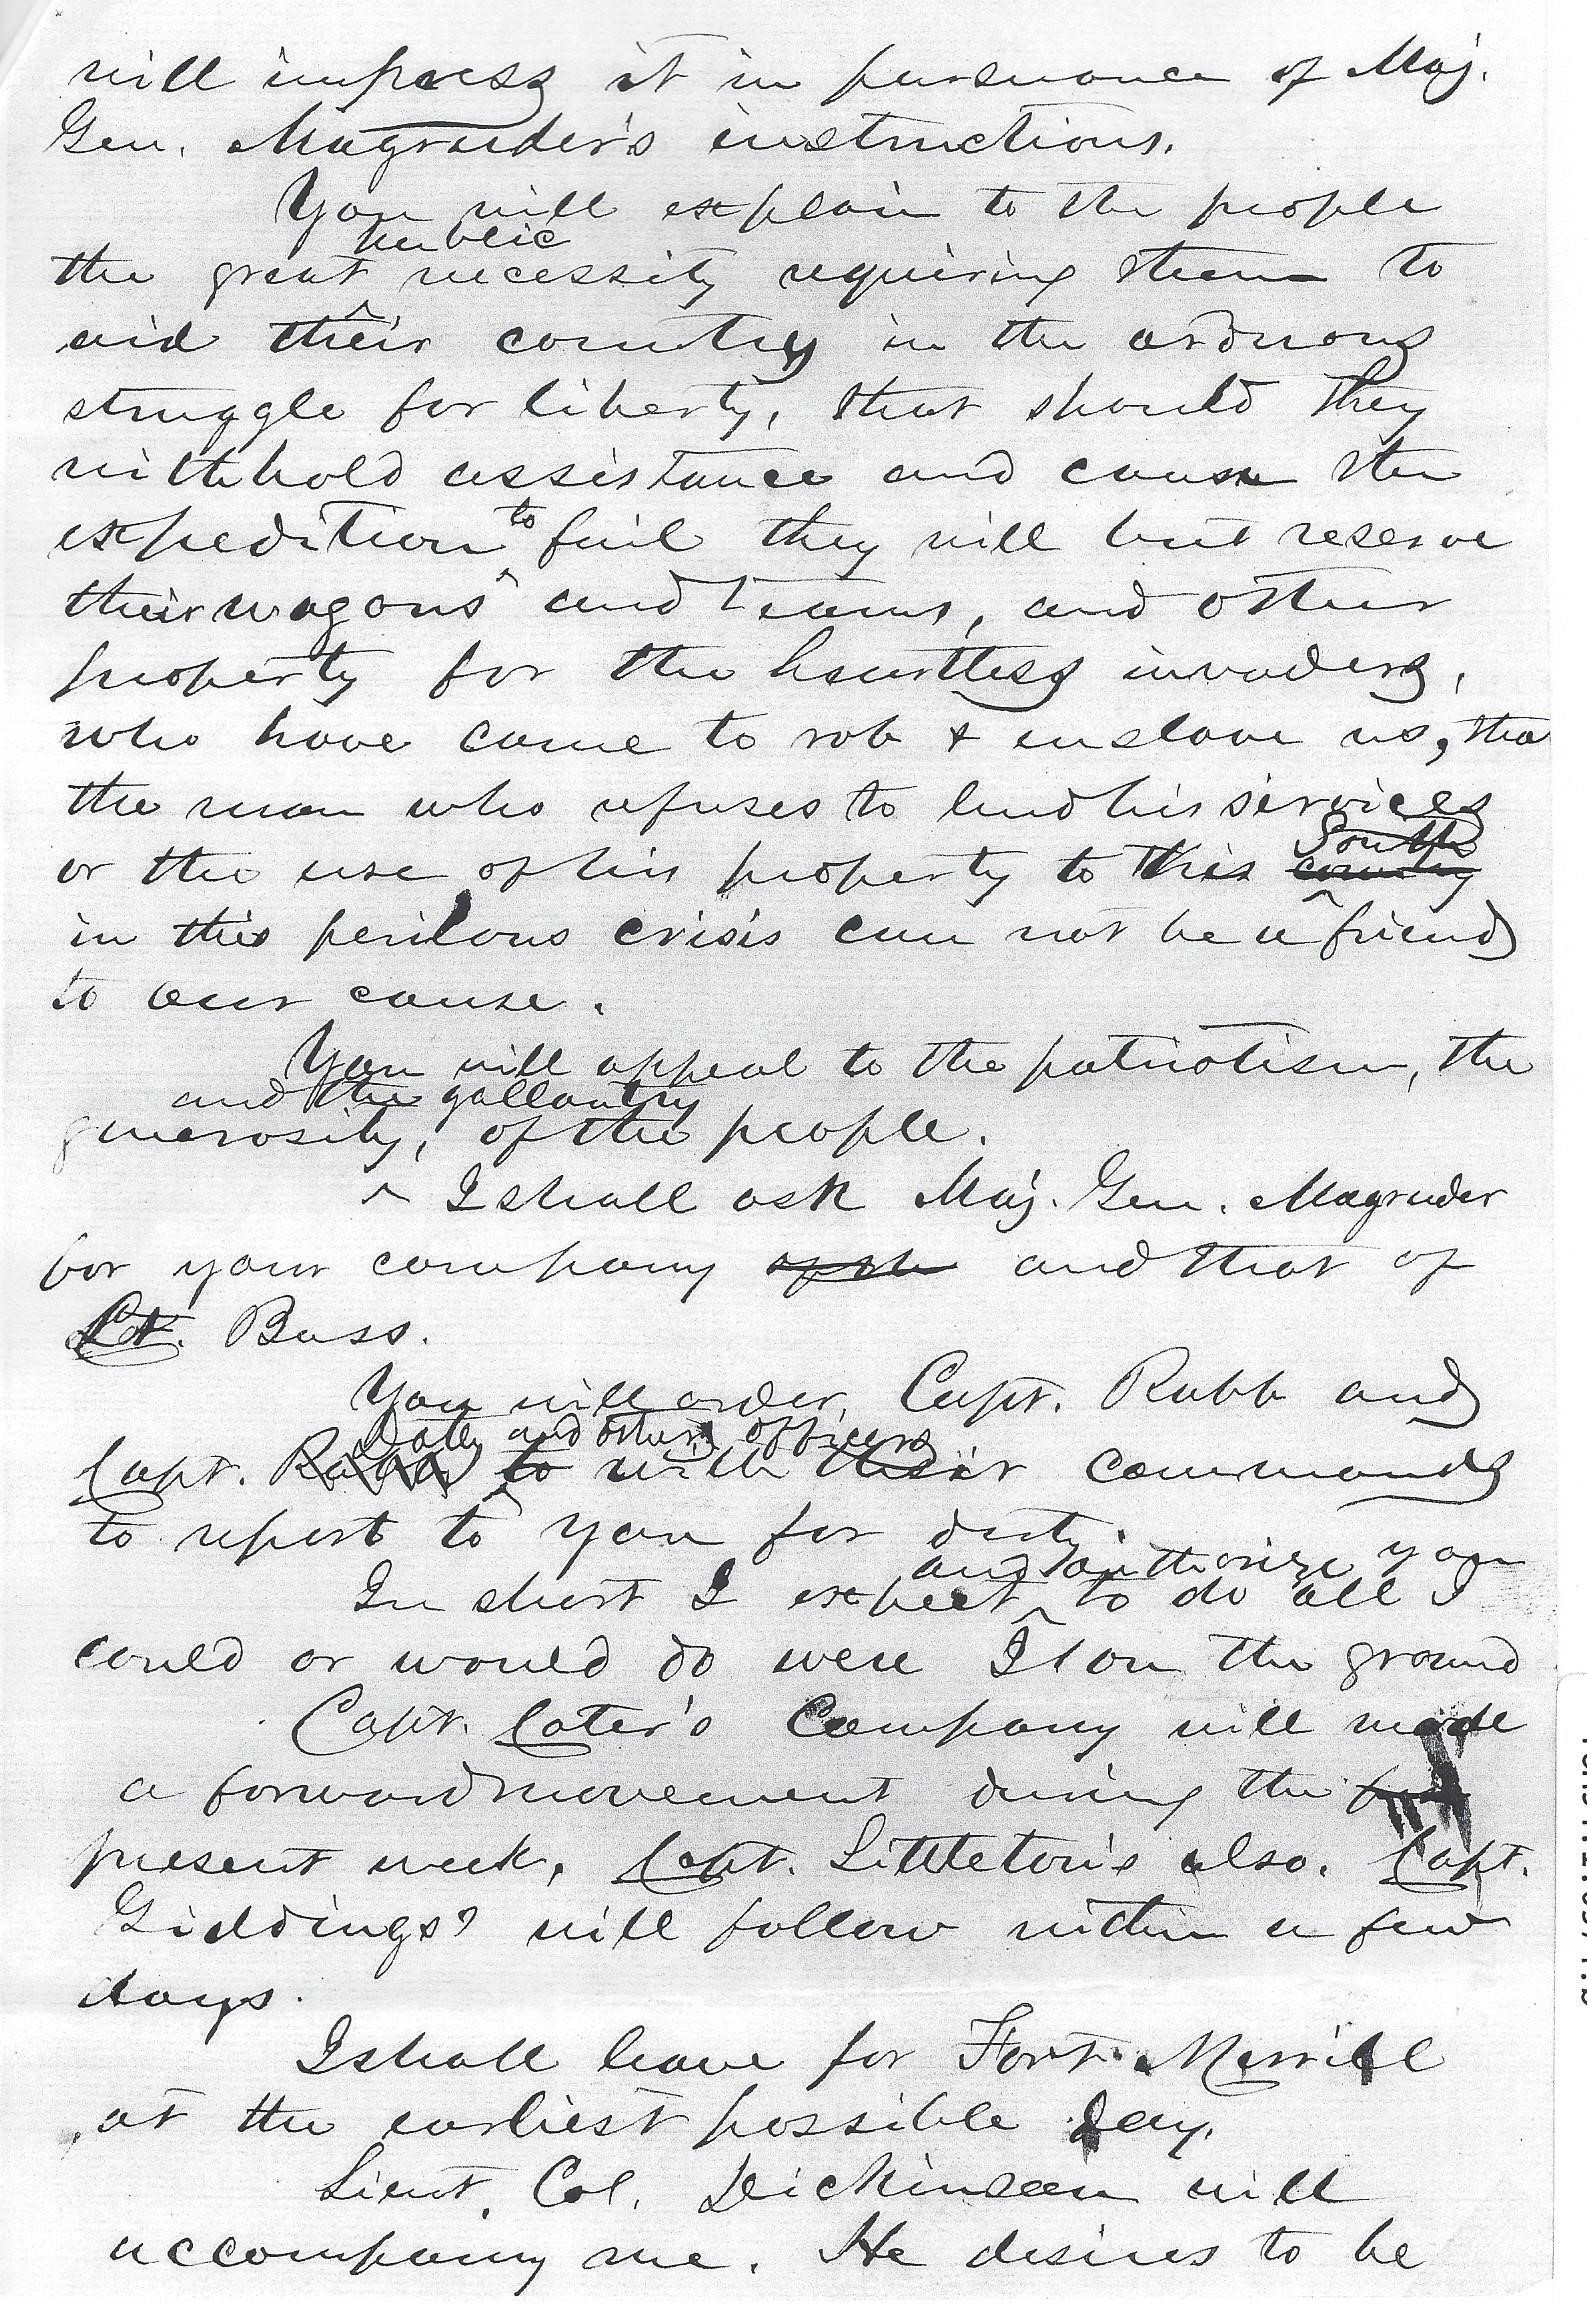 will impress it in pursuance of Maj.
Gen. Magruder's instructions.
You will explain to the people
public
the great necessity requiring them to
aid their country in the arduous
struggle for liberty, that should they
withhold assistance and cause the
expedition to fail they will but reserve
their wagons and teams, and other
property for the heartless invaders,
who have came to rob & enslave us, tha
the man who refuses to lend his services
South
or the use of his property to this country
in this perilous crisis can not be a friend
to our cause.
You will appeal to the patriotism, the
and the gallantry
generosity, of the people.
I shall ask Maj. Gen. Magruder
for your company of the and that of
Lt. Bass.
You will order, Capt. Rabb and
Doaty and others officers
Capt. Rabb to with their commands
to report to you for duty.
and authorize you
In short I expect to do all I
could or would do were I on the ground
Capt. Cater's Company will made
a forward movement during the
present week, Capt. Littleton's also. Capt.
Giddings' will follow within a few
days.
I shall leave for Fort Merrill
at the earliest possible day.
Lieut. Col. Dickinson will
accompany me. He desires to be